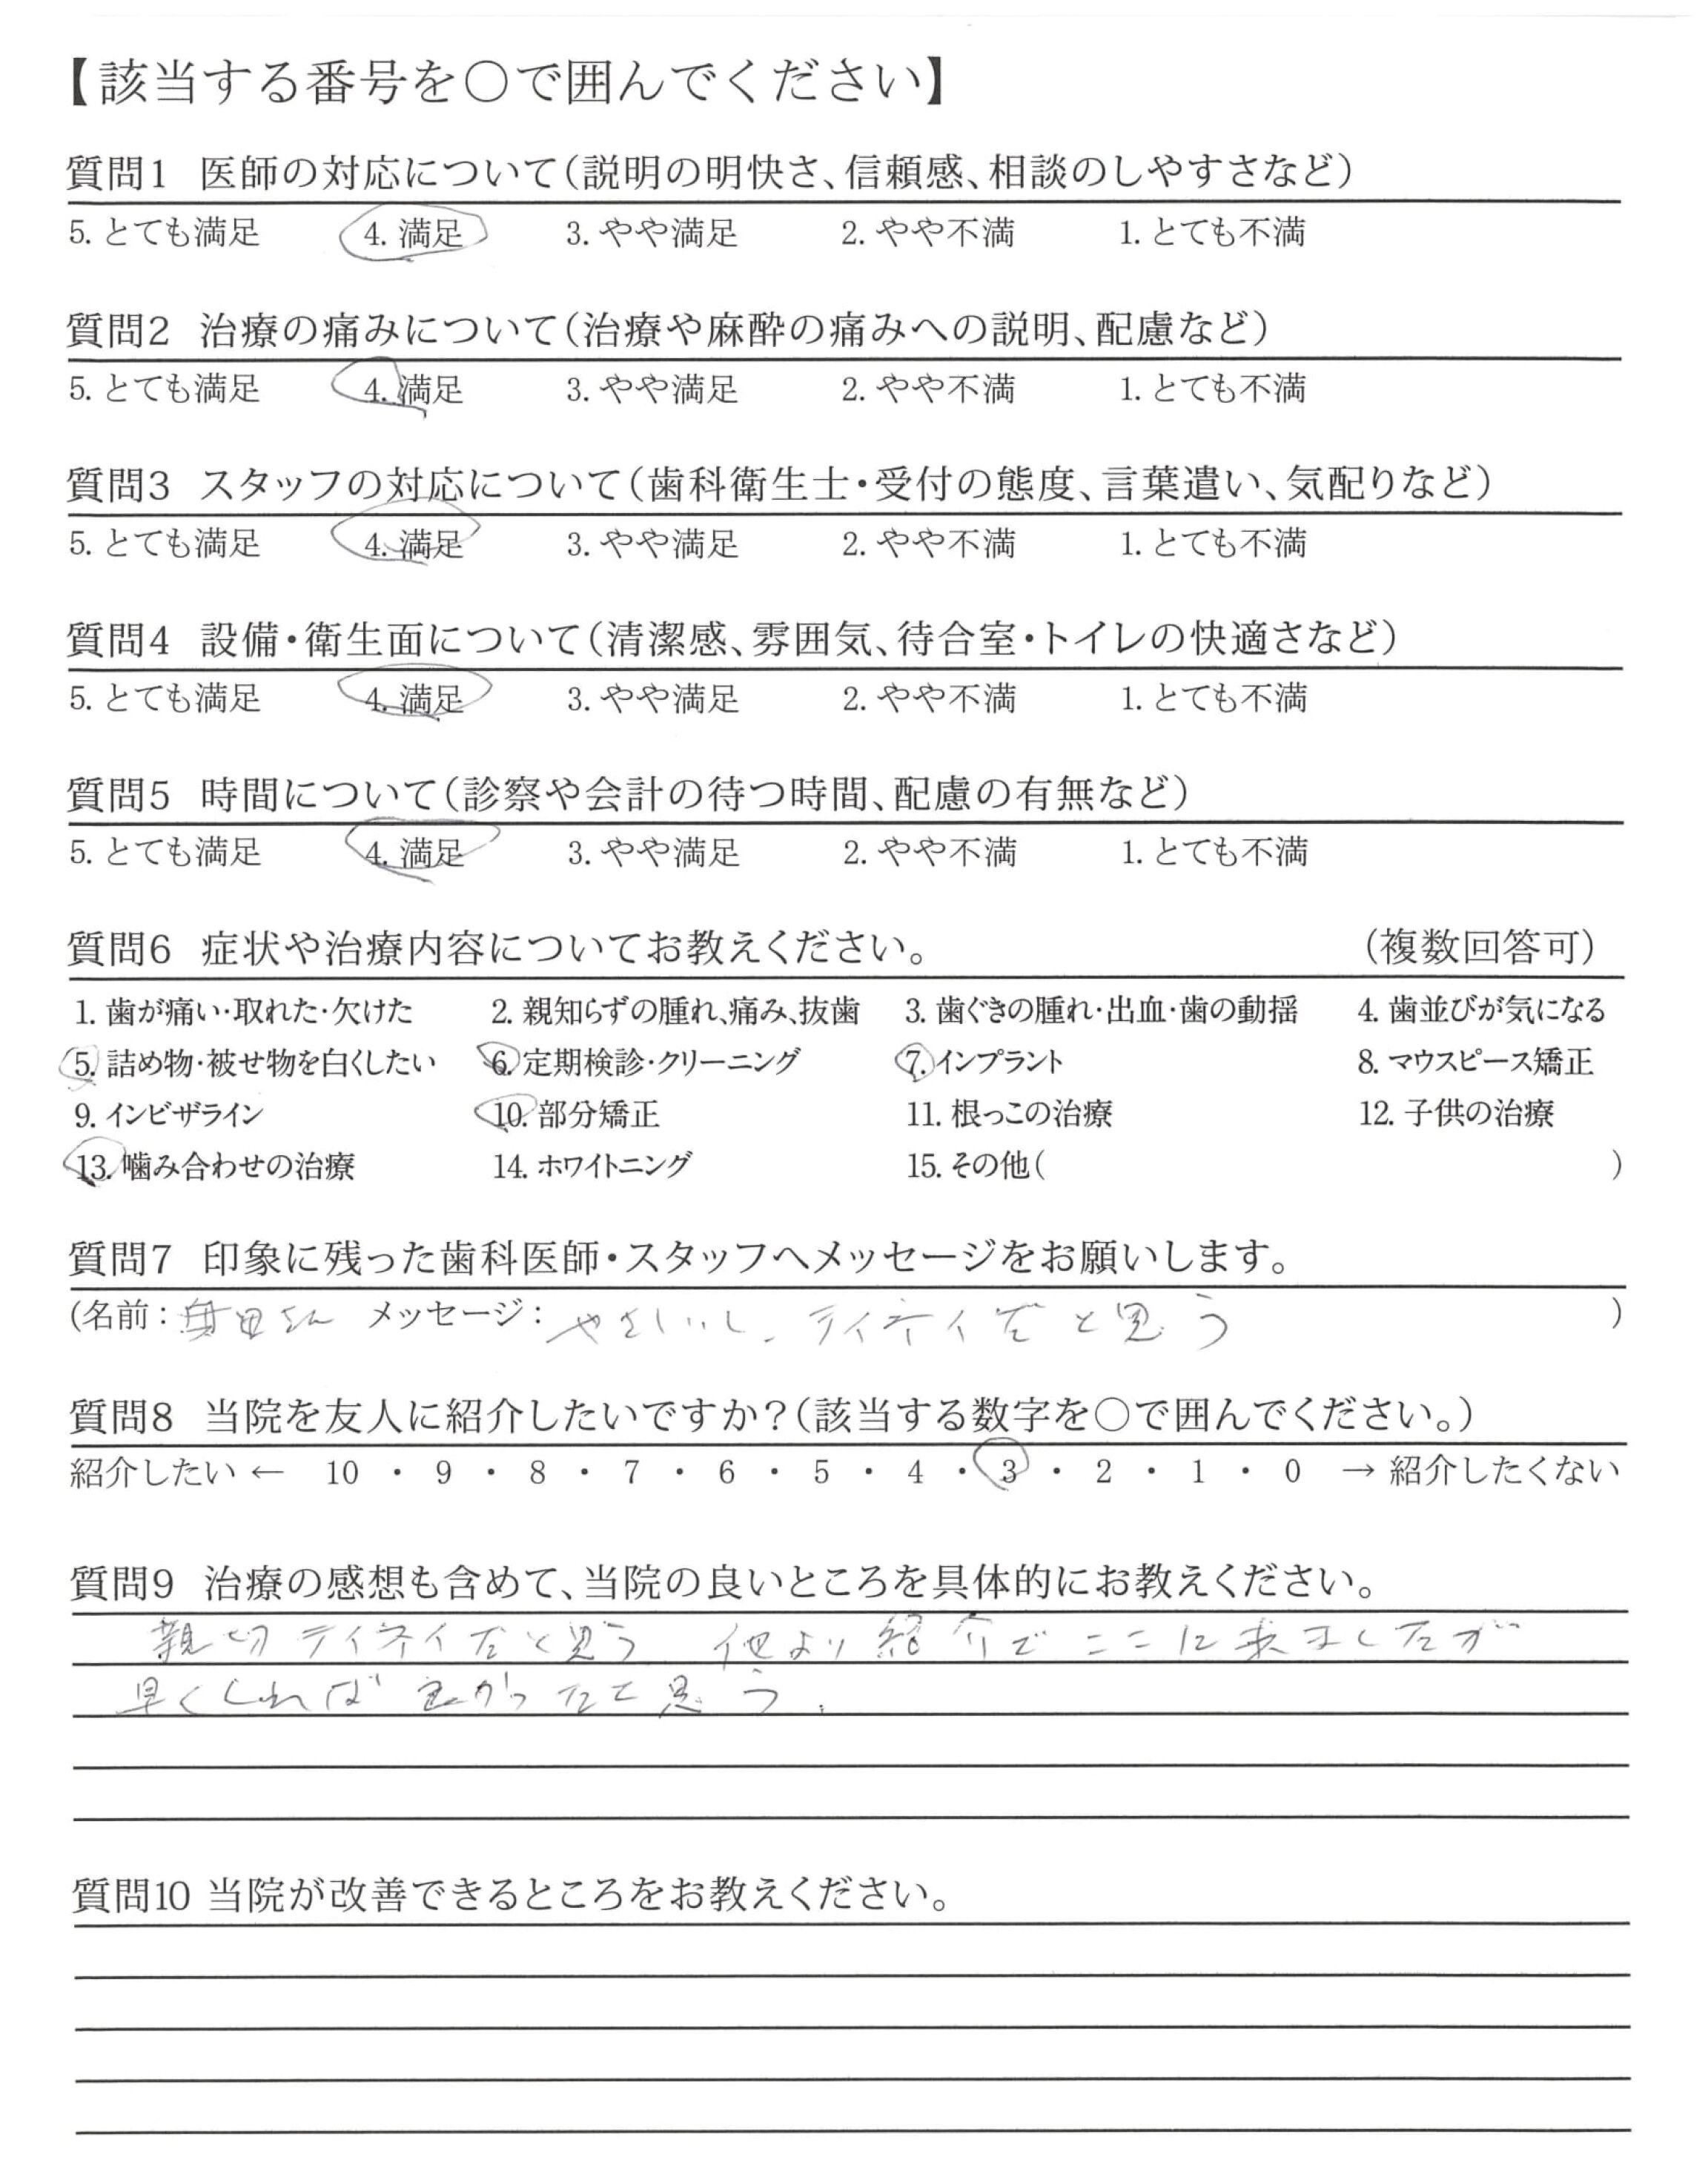 【該当する番号を○で囲んでください】
質問1 医師の対応について(説明の明快さ、信頼感、相談のしやすさなど)
5. とても満足 4. 満足 3. やや満足 2. やや不満 1. とても不満
質問2 治療の痛みについて(治療や麻酔の痛みへの説明、配慮など)
5. とても満足 4. 満足 3. やや満足 2. やや不満 1. とても不満
質問3 スタッフの対応について(歯科衛生士・受付の態度、言葉遣い、気配りなど)
5. とても満足 4. 満足 3. やや満足 2. やや不満 1. とても不満
質問4 設備・衛生面について(清潔感、雰囲気、待合室・トイレの快適さなど)
5. とても満足 4. 満足 3. やや満足 2. やや不満 1. とても不満
質問5 時間について(診察や会計の待つ時間、配慮の有無など)
5. とても満足 4. 満足 3. やや満足 2. やや不満 1. とても不満
質問6 症状や治療内容についてお教えください。 (複数回答可)
1. 歯が痛い・取れた・欠けた 2. 親知らずの腫れ、痛み、抜歯 3. 歯ぐきの腫れ・出血・歯の動揺 4. 歯並びが気になる
5. 詰め物・被せ物を白くしたい 6. 定期検診・クリーニング 7. インプラント 8. マウスピース矯正
9. インビザライン 10. 部分矯正 11. 根っこの治療 12. 子供の治療
13. 噛み合わせの治療 14. ホワイトニング 15. その他( )
質問7 印象に残った歯科医師・スタッフへメッセージをお願いします。
(名前: さん メッセージ: やさしいし、テイネイだと思う )
質問8 当院を友人に紹介したいですか?(該当する数字を○で囲んでください。)
紹介したい ← 10 ・ 9 ・ 8 ・ 7 ・ 6 ・ 5 ・ 4 ・ 3 ・ 2 ・ 1 ・ 0 → 紹介したくない
質問9 治療の感想も含めて、当院の良いところを具体的にお教えください。
親切テイネイだと思う 他より紹介でここに来ましたが
早くくれば良かったと思う.
質問10 当院が改善できるところをお教えください。